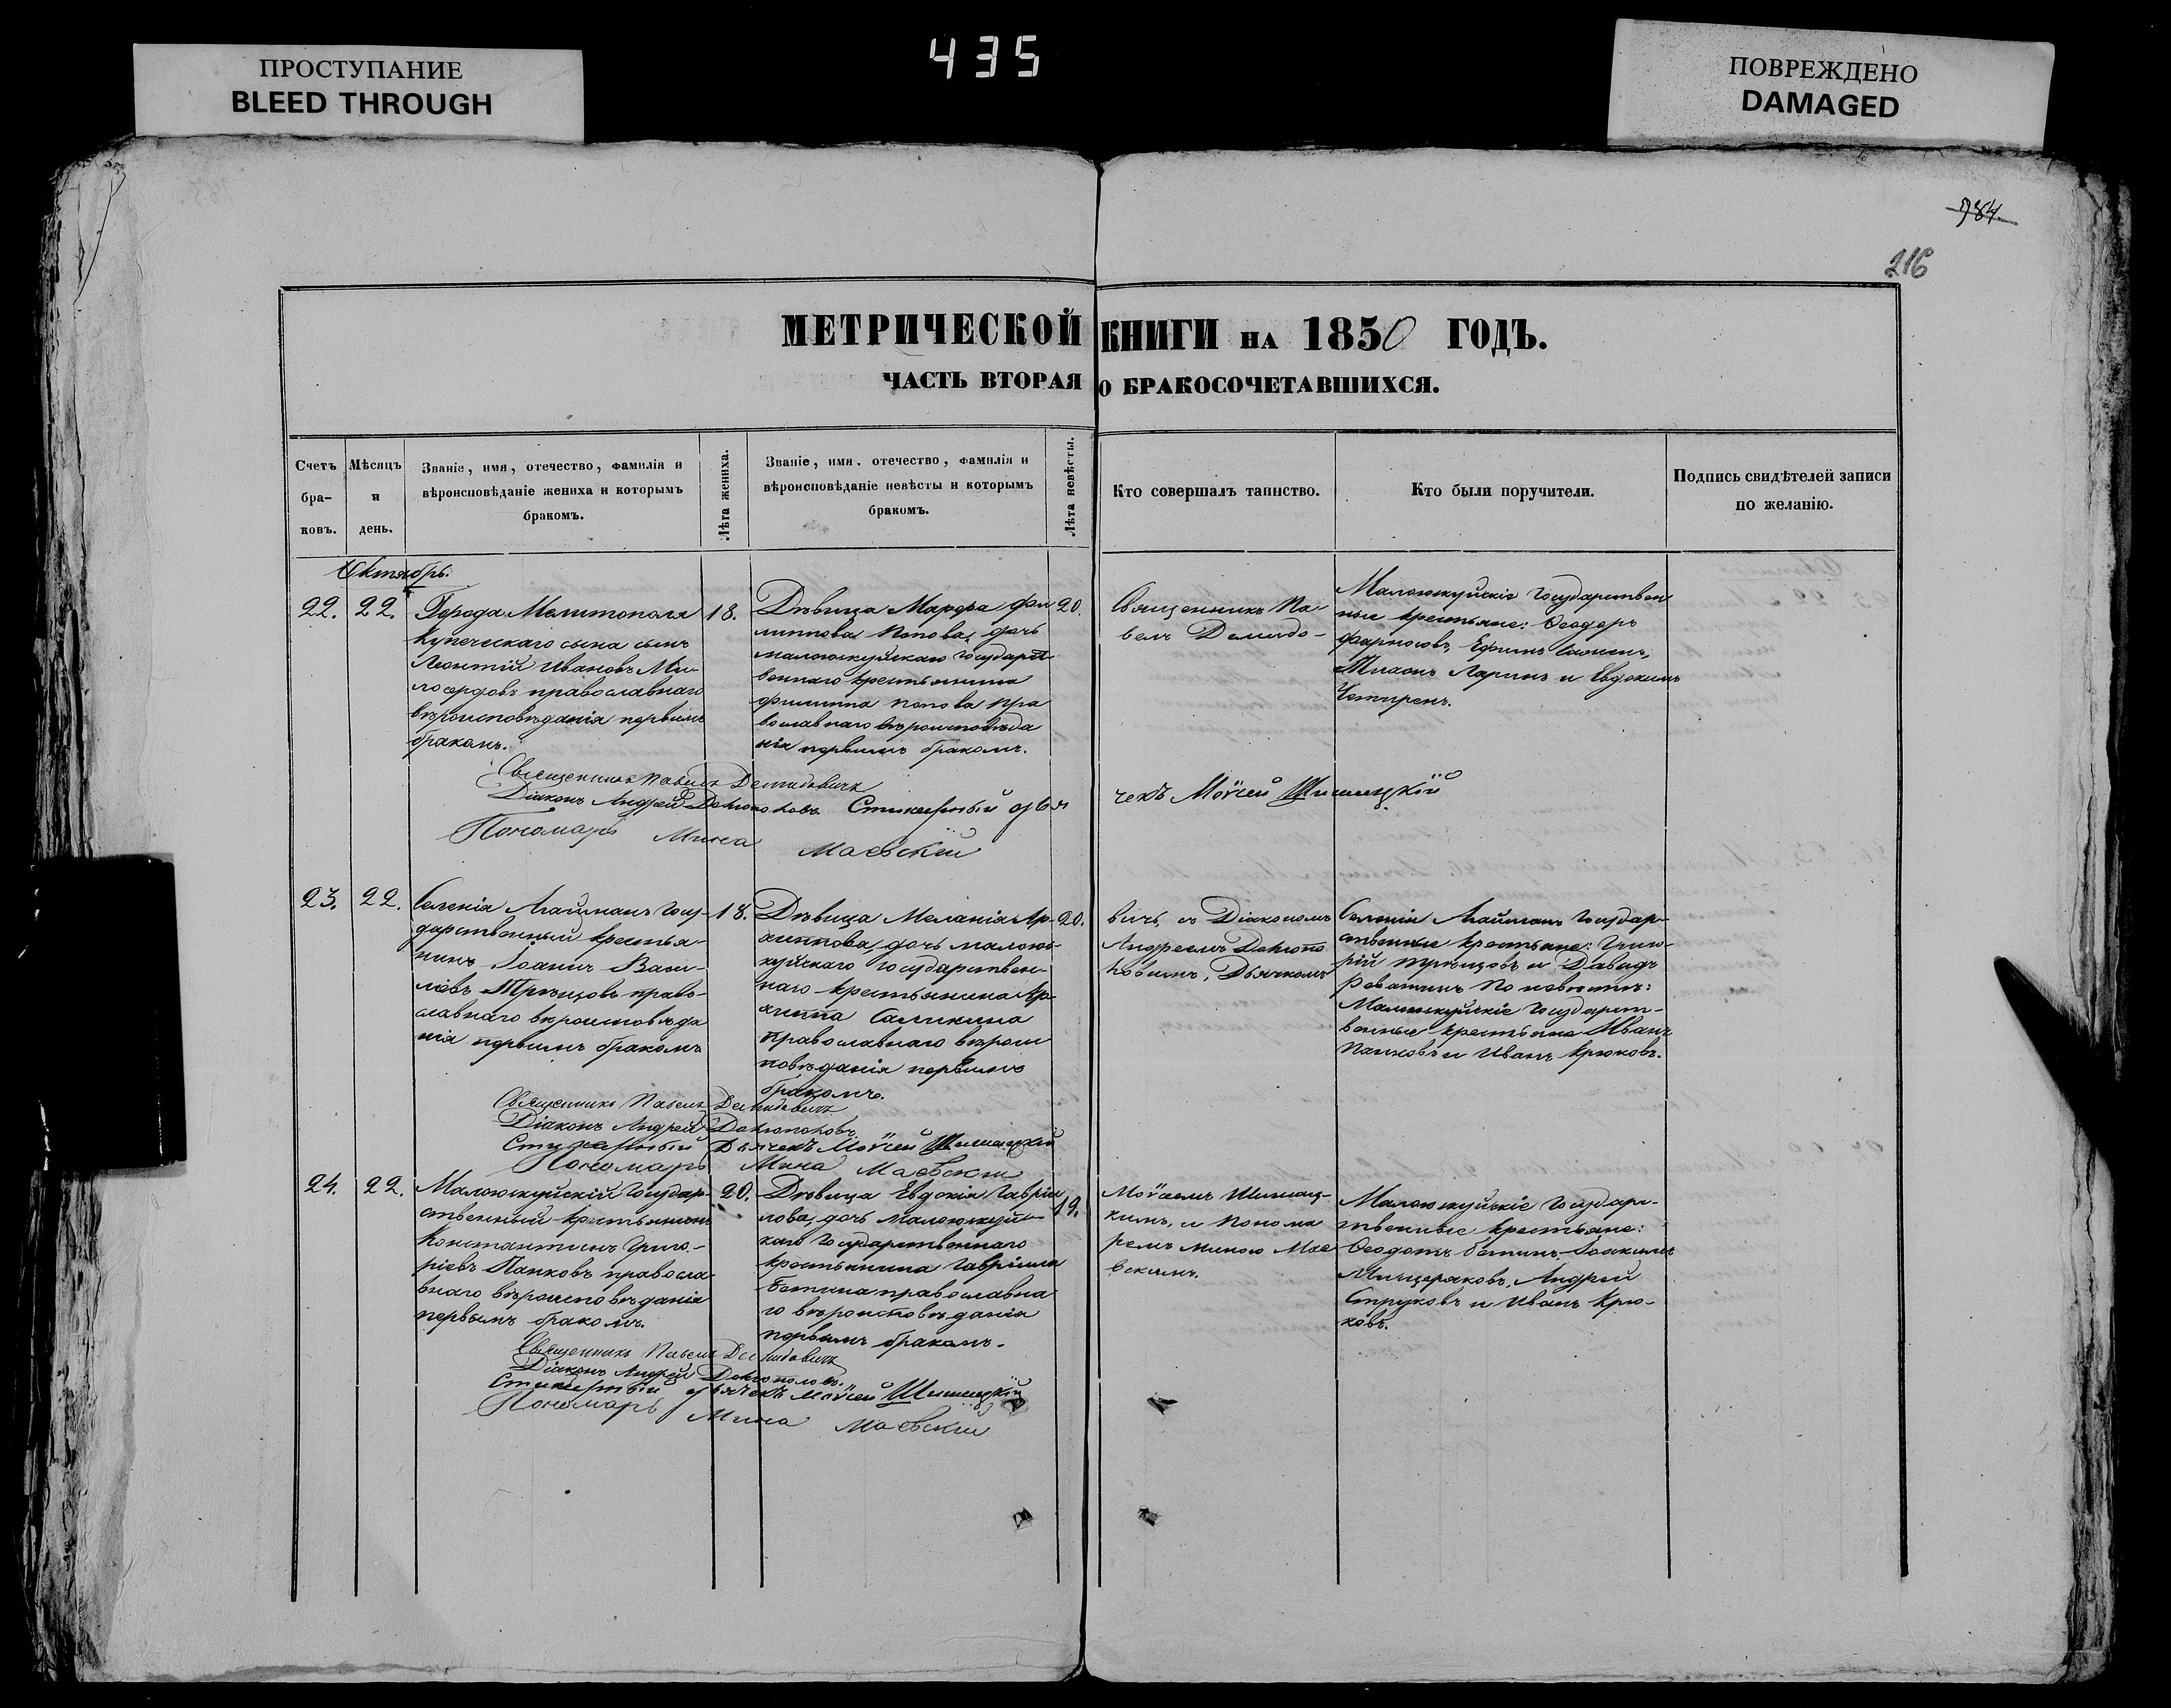 ПРОСТУПАНИЕ
BLEED THROUGH
435
ПОВРЕЖДЕНО
DAMAGED
984
216
МЕТРИЧЕСКОЙ КНИГИ НА 1850 ГОДЪ.
ЧАСТЬ ВТОРАЯ О БРАКОСОЧЕТАВШИХСЯ.
Счетъ
бра-
ковъ.
Мѣсяцъ
и
день.
Званіе, имя, отечество, фамилія и
вѣроисповѣданіе жениха и которымъ
бракомъ.
Лѣта жениха.
Званіе, имя, отечество, фамилія и
вѣроисповѣданіе невѣсты и которымъ
бракомъ.
Лѣта невѣсты.
Кто совершалъ таинство.
Кто были поручители.
Подпись свидѣтелей записи
по желанію.
Октябрь.
22.
22.
Города Мелитополя
купеческаго сына сынъ
Леонтій Ивановъ Ми-
лосердовъ православнаго
вѣроисповѣданія первымъ
бракомъ.
18.
Дѣвица Марфа Фи
липпова Попова, дочь
малоюкуйскаго государст
веннаго крестьянина
Филиппа Попова пра
вославнаго вѣроисповѣда
нія первымъ бракомъ.
20.
Священникъ Па-
велъ Демидо-
Малоюкуйскіе государствен
ные крестьяне: Феодоръ
Ефимъ
Ларинъ и Евдокимъ
Четыринъ.
Священникъ Павелъ Демидовичъ
Діаконъ Андрей Долгополовъ Стихарный дья
чекъ Моѵсей Шишацкій
Пономарь Мина Маевскій
23.
22.
Селенія Акаиманъ госу-
дарственный крестья-
нинъ Іоаннъ Васи-
ліевъ право-
славнаго вѣроисповѣда
нія первымъ бракомъ
18.
Дѣвица Меланія Ар-
хиппова, дочь малою-
куйскаго государствен-
наго крестьянина Ар-
хиппа Саликина
православнаго вѣроис
повѣданія первымъ
бракомъ.
20.
вичъ, съ Діакономъ
Андреемъ Долгопо
ловымъ, Дьячкомъ
Селенія Акаиманъ государ-
ственные крестьяне: Григо-
рій и Давидъ
По невѣстѣ:
Малоюкуйскіе государст-
венные крестьяне Иванъ
Панковъ и Иванъ Крюковъ.
Священникъ Павелъ Демидовичъ
Діаконъ Андрей Долгополовъ
Стихарный Дьячекъ Моѵсей Шишацкій
Пономарь Мина Маевскій
24.
22.
Малоюкуйскій государ-
ственный крестьянинъ
Константинъ Григо-
ріевъ Панковъ правосла-
внаго вѣроисповѣданія
первымъ бракомъ.
20.
Дѣвица Евдокія Гавріи
лова, дочь Малоюкуйс-
каго государственнаго
крестьянина Гавріила
Ботина православна
го вѣроисповѣданія
первымъ бракомъ.
19.
Моѵсеемъ Шишац-
кимъ, и Понома
ремъ Миною Мае
вскимъ.
Малоюкуйскіе государс-
твенные крестьяне:
Феодотъ Ботинъ, Іоакимъ
Мищеряковъ, Андрей
Струковъ и Иванъ Крю-
ковъ.
Священникъ Павелъ Демидовичъ
Діаконъ Андрей Долгополовъ.
Стихарный дьячекъ Моѵсей Шишацкій
Пономарь Мина Маевскій